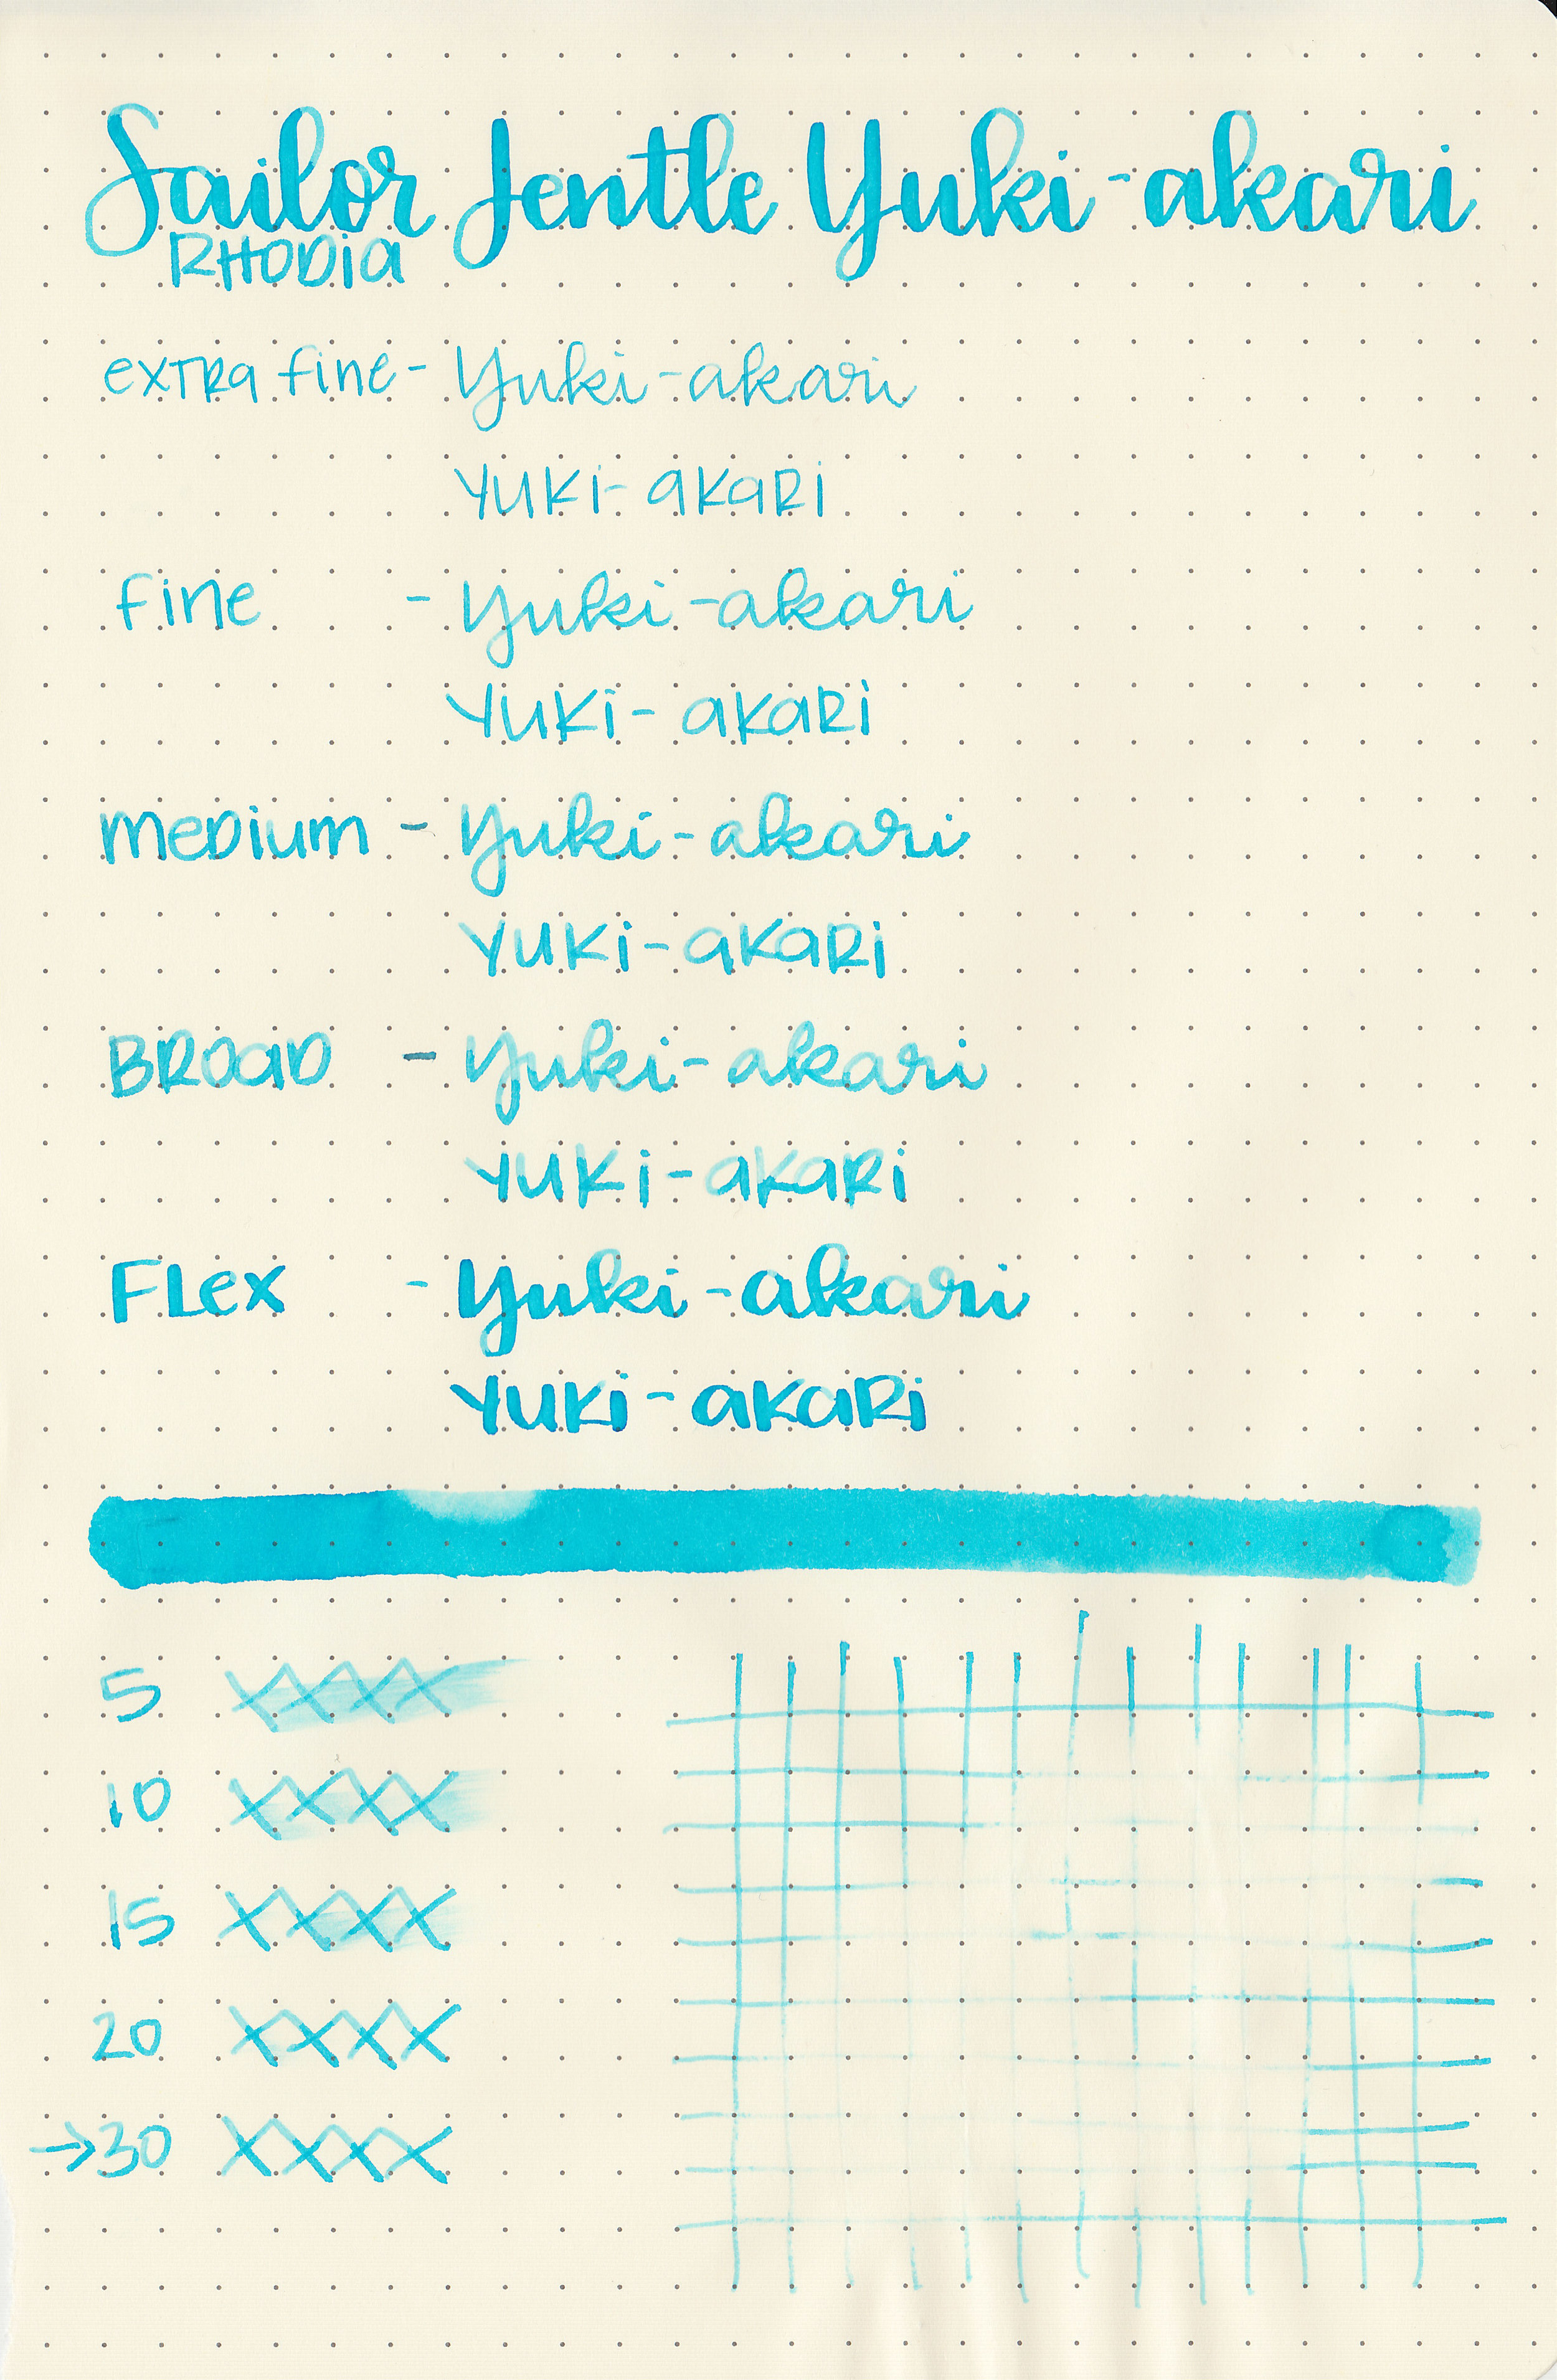 Sailor Jentle Yuki-akari
RHODIA
extra fine - Yuki-akari
Yuki-akari
fine - Yuki-akari
Yuki-akari
medium - Yuki-akari
Yuki-akari
Broad - Yuki-akari
Yuki-akari
Flex - Yuki-akari
Yuki-akari
5 XXXX
10 XXXX
15 XXXX
20 XXXX
→30 XXXX